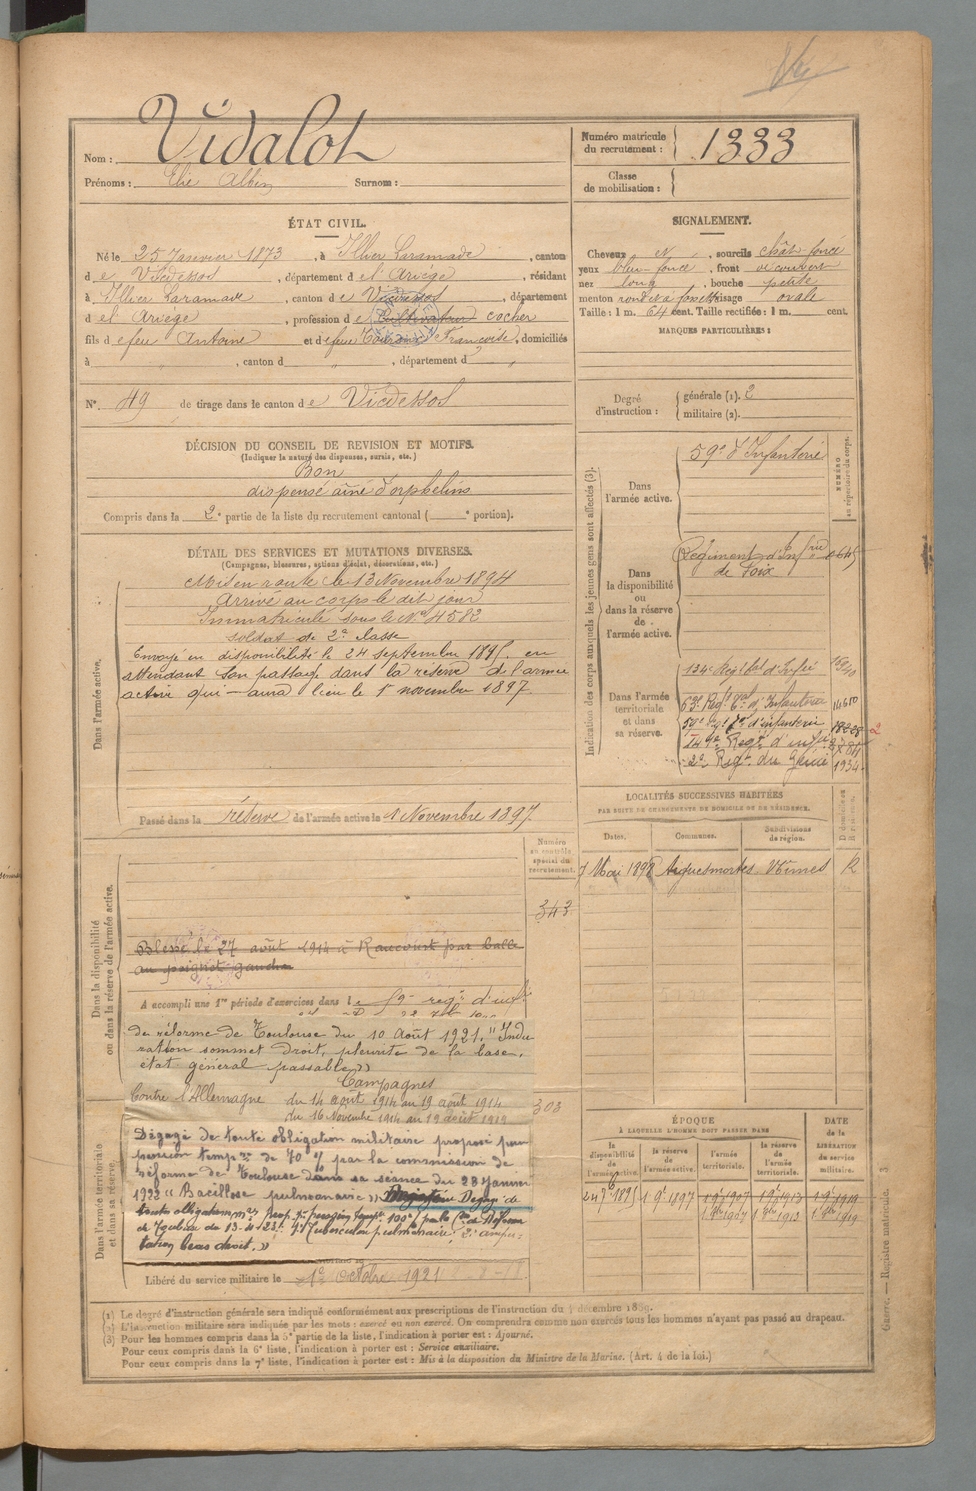 Nom : Vidalot
Prénoms : Elie Albin Surnom :
Numéro matricule du recrutement : 1333
Classe de mobilisation :
ÉTAT CIVIL.
Né le 25 Janvier 1873, à Illier Laramade, canton
de Vicdessos, département de l'Ariège, résidant
à Illier Laramade, canton de Vicdessos, département
de l'Ariège, profession de Cultivateur cocher
fils de feu Antoine et de feue Françoise, domiciliés
à " , canton d " , département d "
N° 49 de tirage dans le canton de Vicdessos
SIGNALEMENT.
Cheveux et , sourcils chât-foncé
yeux bleu-foncé, front découvert
nez long, bouche petite
menton rond à fossette visage ovale
Taille : 1 m. 64 cent. Taille rectifiée : 1 m. cent.
MARQUES PARTICULIÈRES :
Degré d'instruction : générale (1). 2
militaire (2).
DÉCISION DU CONSEIL DE REVISION ET MOTIFS.
(Indiquer la nature des dispenses, sursis, etc.)
Bon
dispensé aîné d'orphelins
Compris dans la 2e partie de la liste du recrutement cantonal ( e portion).
DÉTAIL DES SERVICES ET MUTATIONS DIVERSES.
(Campagnes, blessures, actions d'éclat, décorations, etc.)
Dans l'armée active.
Mis en route le 13 Novembre 1894
Arrivé au corps le dit jour
Immatriculé sous le N° 4582
soldat de 2e classe
Envoyé en disponibilité le 24 septembre 1895 en
attendant son passage dans la réserve de l'armée
active qui aura lieu le 1er novembre 1897.
Passé dans la réserve de l'armée active le 1 Novembre 1897.
Indication des corps auxquels les jeunes gens sont affectés (3).
NUMÉRO au répertoire du corps.
Dans l'armée active.
59e d'Infanterie
Dans la disponibilité ou dans la réserve de l'armée active.
Régiment d'Infrie
de Foix
Dans l'armée territoriale et dans sa réserve.
134e Régt tal d'Infie
63e Régt tal d'Infanterie 14610
59e Régt d'infanterie
144e Regt d'infie
2e Regt du Génie 1934
LOCALITÉS SUCCESSIVES HABITÉES
PAR SUITE DE CHANGEMENTS DE DOMICILE OU DE RÉSIDENCE.
Dates. Communes. Subdivisions de région. D domicile ou R résidence.
7 Mai 1898 Aiguesmortes Nîmes R
Dans la disponibilité ou dans la réserve de l'armée active.
Numéro au contrôle spécial du recrutement.
343
Blessé le 27 août 1914 à Raucourt par balle
au poignet gauche
A accompli une 1re période d'exercices dans le 59e regt d'infie
de réforme de Toulouse du 10 Août 1921. "Indu
ration sommet droit, pleurite de la base,
état général passable"
Campagnes
Contre l'Allemagne du 14 août 1914 au 19 août 1914
du 16 Novembre 1914 au 19 août 1919
303
Dans l'armée territoriale et dans sa réserve.
Dégagé de toute obligation militaire proposé pour
pension tempre de 70 % par la commission de
réforme de Toulouse dans sa séance du 28 Janvier
1922 "Bacillose pulmonaire" Dégagé de
toute obligation mre Prop. pr pension tempre 100% par la Con de Réforme
de Toulouse du 13-4-23. 1° Tuberculose pulmonaire; 2° ampu-
tation bras droit."
Libéré du service militaire le 1er octobre 1921
ÉPOQUE
À LAQUELLE L'HOMME DOIT PASSER DANS
la disponibilité de l'armée active. la réserve de l'armée active. l'armée territoriale. la réserve de l'armée territoriale. DATE de la LIBÉRATION du service militaire.
24 7bre 1895 1 9bre 1897 1 9bre 1907 1 9bre 1913 1 9bre 1919
1 8bre 1907 1 8bre 1913 1 8bre 1919
(1) Le degré d'instruction générale sera indiqué conformément aux prescriptions de l'instruction du 4 décembre 1889.
(2) L'instruction militaire sera indiquée par les mots : exercé ou non exercé. On comprendra comme non exercés tous les hommes n'ayant pas passé au drapeau.
(3) Pour les hommes compris dans la 5e partie de la liste, l'indication à porter est : Ajourné.
Pour ceux compris dans la 6e liste, l'indication à porter est : Service auxiliaire.
Pour ceux compris dans la 7e liste, l'indication à porter est : Mis à la disposition du Ministre de la Marine. (Art. 4 de la loi.)
Guerre. — Registre matricule. 3